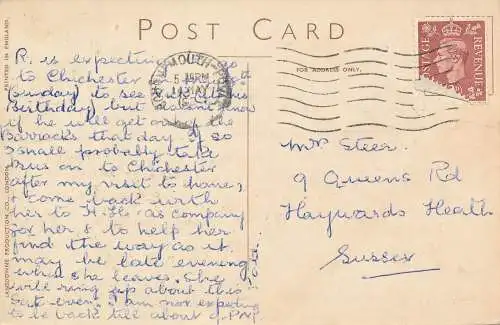 POST CARD
PRINTED IN ENGLAND.
LANSDOWNE PRODUCTION CO., LONDON.
FOR ADDRESS ONLY.
POSTAGE
REVENUE
MOUTH
5
MAY
R. is expecting to go
to Chichester
(Sunday) to see
Birthday) but doesn't know
if he will get out of the
Barracks that day. If so
I shall probably take
Bus on to Chichester
after my visit to hane,
& come back with
her to H.H. as company
for her, & to help her
find the way as it
may be late evening
when she leaves. She
will ring up about this
Sat even. I am not expecting
to be back till about 9. PM
Mr Steer.
9 Queens Rd
Haywards Heath
Sussex